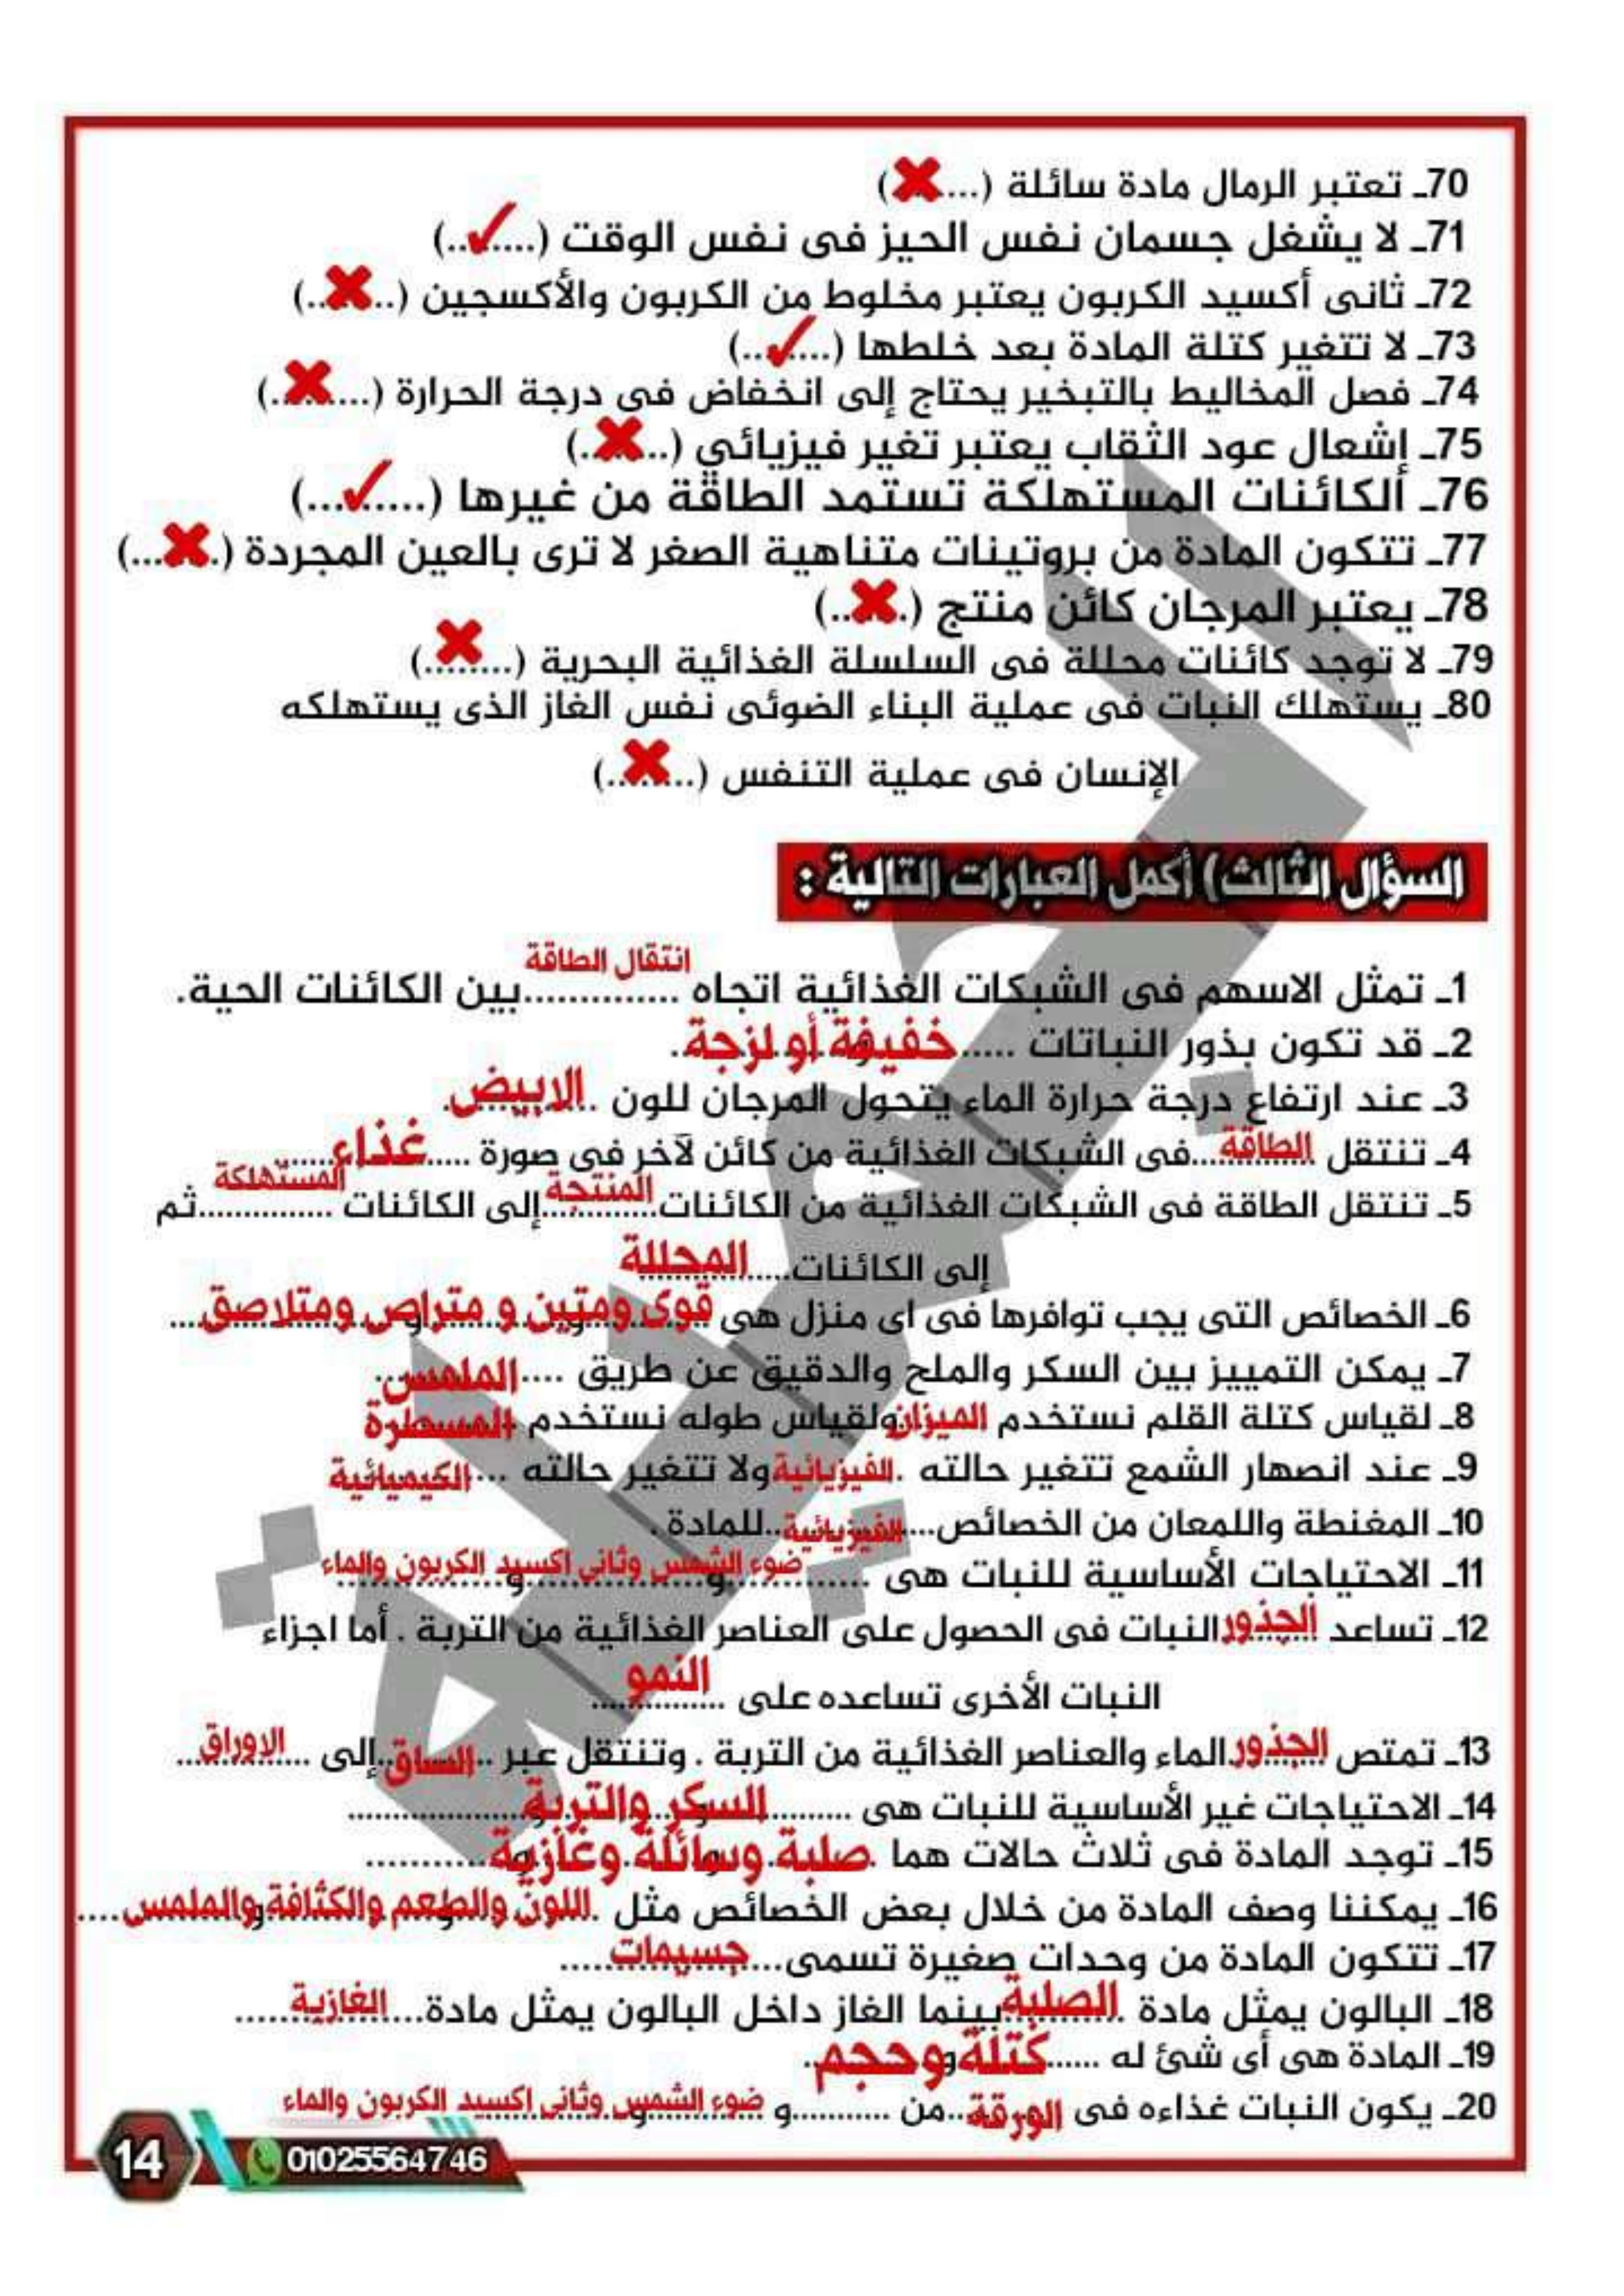 70ـ تعتبر الرمال مادة سائلة (...✖)
71ـ لا يشغل جسمان نفس الحيز فى نفس الوقت (....✓..)
72ـ ثانى أكسيد الكربون يعتبر مخلوط من الكربون والأكسجين (..✖..)
73ـ لا تتغير كتلة المادة بعد خلطها (....✓..)
74ـ فصل المخاليط بالتبخير يحتاج إلى انخفاض فى درجة الحرارة (....✖.)
75ـ إشعال عود الثقاب يعتبر تغير فيزيائي (..✖.)
76ـ الكائنات المستهلكة تستمد الطاقة من غيرها (.....✓...)
77ـ تتكون المادة من بروتينات متناهية الصغر لا ترى بالعين المجردة (.✖...)
78ـ يعتبر المرجان كائن منتج (.✖..)
79ـ لا توجد كائنات محللة فى السلسلة الغذائية البحرية (...✖.)
80ـ يستهلك النبات فى عملية البناء الضوئى نفس الغاز الذى يستهلكه
الإنسان فى عملية التنفس (...✖.)
السؤال الثالث) أكمل العبارات التالية :
1ـ تمثل الاسهم فى الشبكات الغذائية اتجاه انتقال الطاقة ..............بين الكائنات الحية.
2ـ قد تكون بذور النباتات ..... خفيفة أو لزجة.
3ـ عند ارتفاع درجة حرارة الماء يتحول المرجان للون الابيض.
4ـ تنتقل الطاقة...فى الشبكات الغذائية من كائن لآخر فى صورة ..... غذاء.....
5ـ تنتقل الطاقة فى الشبكات الغذائية من الكائنات المنتجة...إلى الكائنات المستهلكة..............ثم
إلى الكائنات.....المحللة
6ـ الخصائص التى يجب توافرها فى اى منزل هى قوى ومتين و متراص ومتلاصق....
7ـ يمكن التمييز بين السكر والملح والدقيق عن طريق .... الملمس
8ـ لقياس كتلة القلم نستخدم الميزان ولقياس طوله نستخدم المسطرة
9ـ عند انصهار الشمع تتغير حالته .الفيزيائية ولا تتغير حالته ....الكيميائية
10ـ المغنطة واللمعان من الخصائص....الفيزيائية..للمادة .
11ـ الاحتياجات الأساسية للنبات هى ....... ضوء الشمس وثانى اكسيد الكربون والماء
12ـ تساعد الجذور النبات فى الحصول على العناصر الغذائية من التربة . أما اجزاء
النبات الأخرى تساعده على النمو
13ـ تمتص الجذور الماء والعناصر الغذائية من التربة . وتنتقل عبر ..الساق..إلى الاوراق
14ـ الاحتياجات غير الأساسية للنبات هى ........ السكر والتربة..................
15ـ توجد المادة فى ثلاث حالات هما صلبة وسائلة وغازية...........
16ـ يمكننا وصف المادة من خلال بعض الخصائص مثل اللون والطعم والكثافة والملمس....
17ـ تتكون المادة من وحدات صغيرة تسمى....جسيمات.....
18ـ البالون يمثل مادة الصلبة بينما الغاز داخل البالون يمثل مادة...الغازية......
19ـ المادة هى أى شئ له ..... كتلة وحجم
20ـ يكون النبات غذاءه فى الورقة..من ...........و ضوء الشمس وثانى اكسيد الكربون والماء
14
01025564746